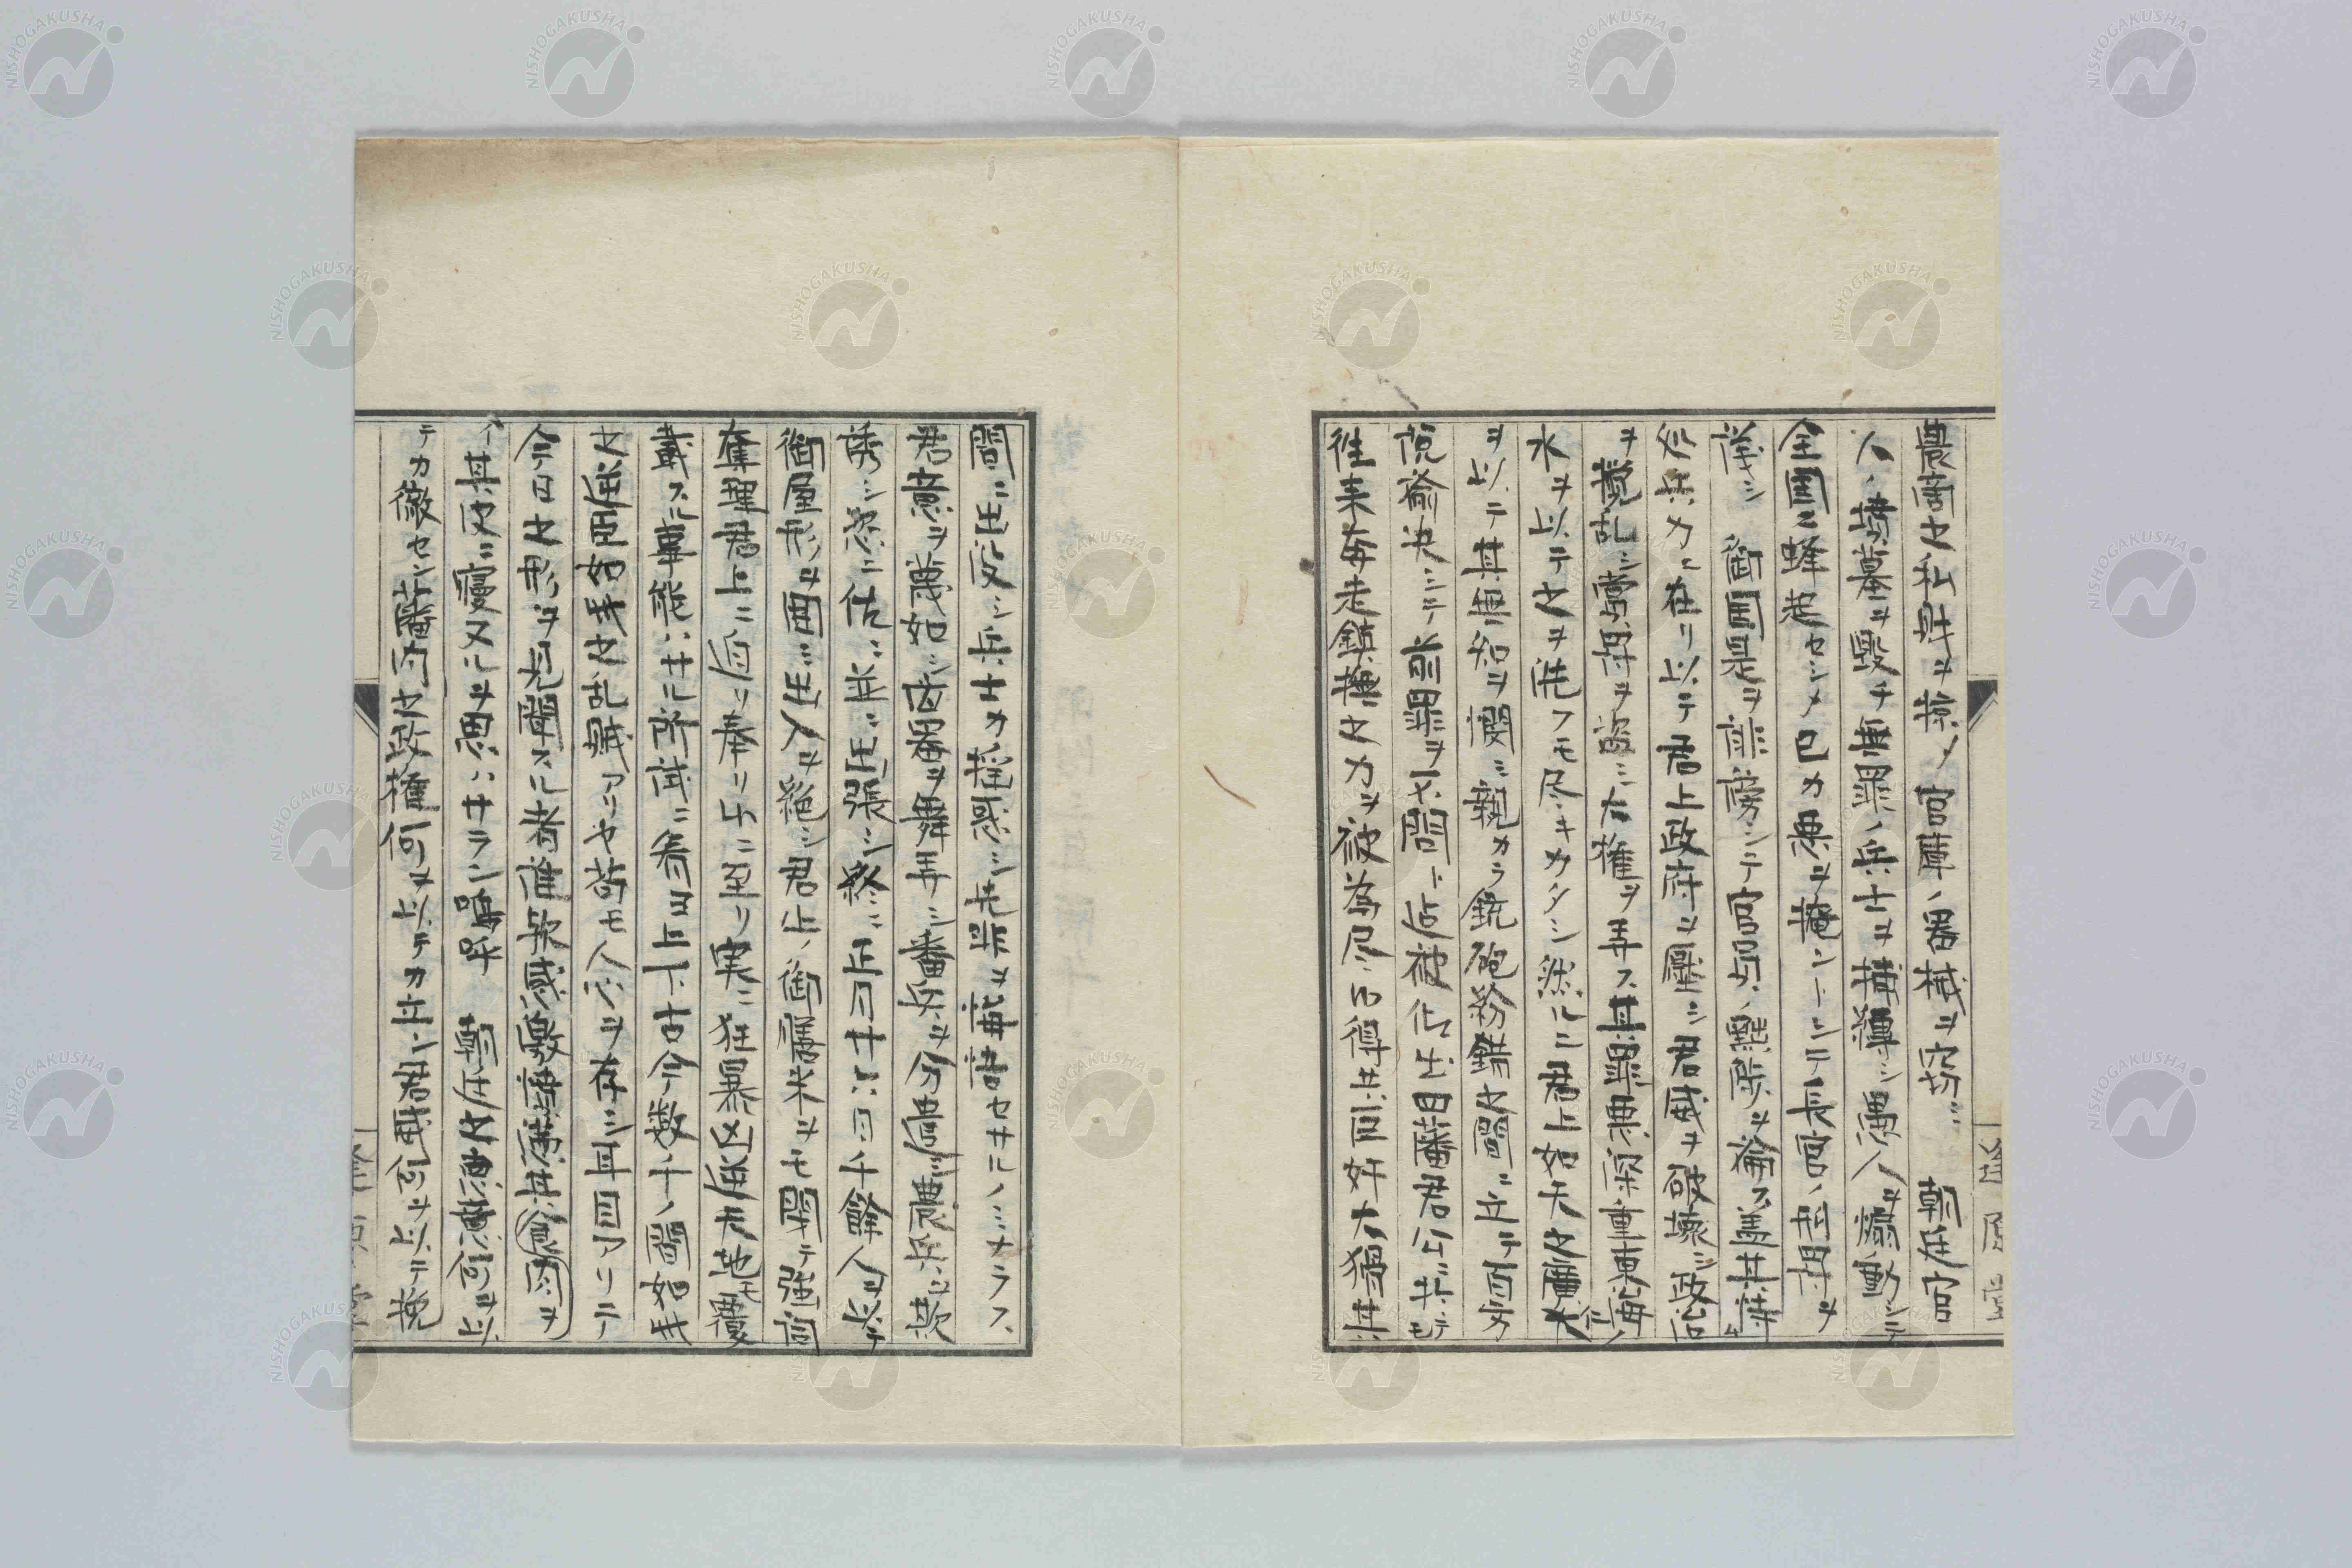 農商之私財ヲ掠メ官庫ノ器械ヲ窃ミ 朝廷官
人ノ墳墓ヲ毀チ無罪ノ兵士ヲ構殫シ愚人ヲ煽動シテ
全国ニ蜂起セシメ己カ悪ヲ掩ントシテ長官ノ
儀シ 御国是ヲ誹謗シテ官員ノ ヲ蓋其恃
処兵力ニ在リ以テ君上政府ヲ壓シ君威ヲ破壊シ政治
ヲ攪乱シ ヲ盗ミ大権ヲ弄ス其罪悪深重東海ノ
水ヲ以テ之ヲ洗フモ尽キカタシ然ルニ君上如天之廣大
ヲ以テ其無知ヲ憫ミ親カラ銃砲紛錯之間ニ立テ百方
説諭決シテ前罪ヲ不問ト 旧藩君公ニモ
往来奔走鎮撫之力ヲ被為尽候得共同奸大猾其
間ニ出没シ兵士カ揺惑シ先非ヲ悔悟セサルノミナラス
君意ヲ蔑如シ 器ヲ舞弄シ番兵ヲ分 シ農兵ヲ欺
誘シ恣ニ ニ出張シ終ニ正月廿 日千餘人ヲ以テ
御屋形ヲ囲ミ出入ヲ絶シ君上ノ御膳米ヲモ閉テ強訴
奪理君上ニ迫リ奉リ候ニ至リ実ニ狂暴凶逆天地モ覆
載スル事能ハサル所試ニ看ヨ上下古今数千ノ間如此
之逆臣如此之乱賊アリヤ苟モ人心ヲ存シ耳目アリテ
今日之形ヲ見聞スル者誰歟感激 其食肉ヲ
其皮ニ寝ヌルヲ思ハサラン嗚呼 朝廷之 何ヲ以
テカ徹セン藩内之政権何ヲ以テカ立ン君威何ヲ以テ挽